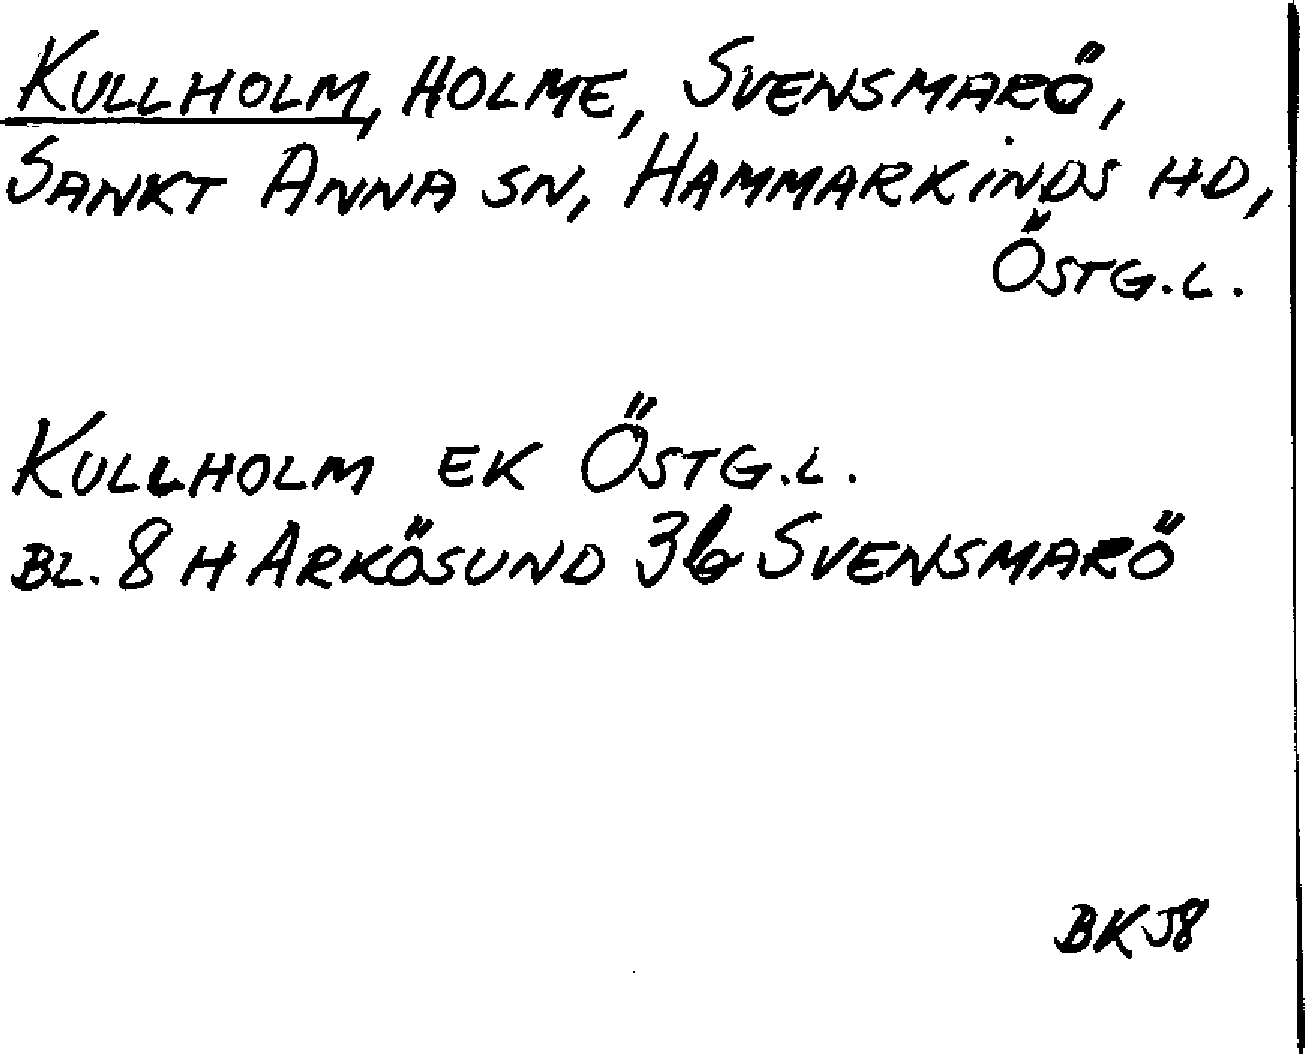 KULLHOLM, HOLME, SVENSMARÖ,
SANKT ANNA SN, HAMMARKINDS HD,
ÖSTG.L.
KULLHOLM EK ÖSTG.L.
BL. 8 H ARKÖSUND 3b SVENSMARÖ
BKJ8